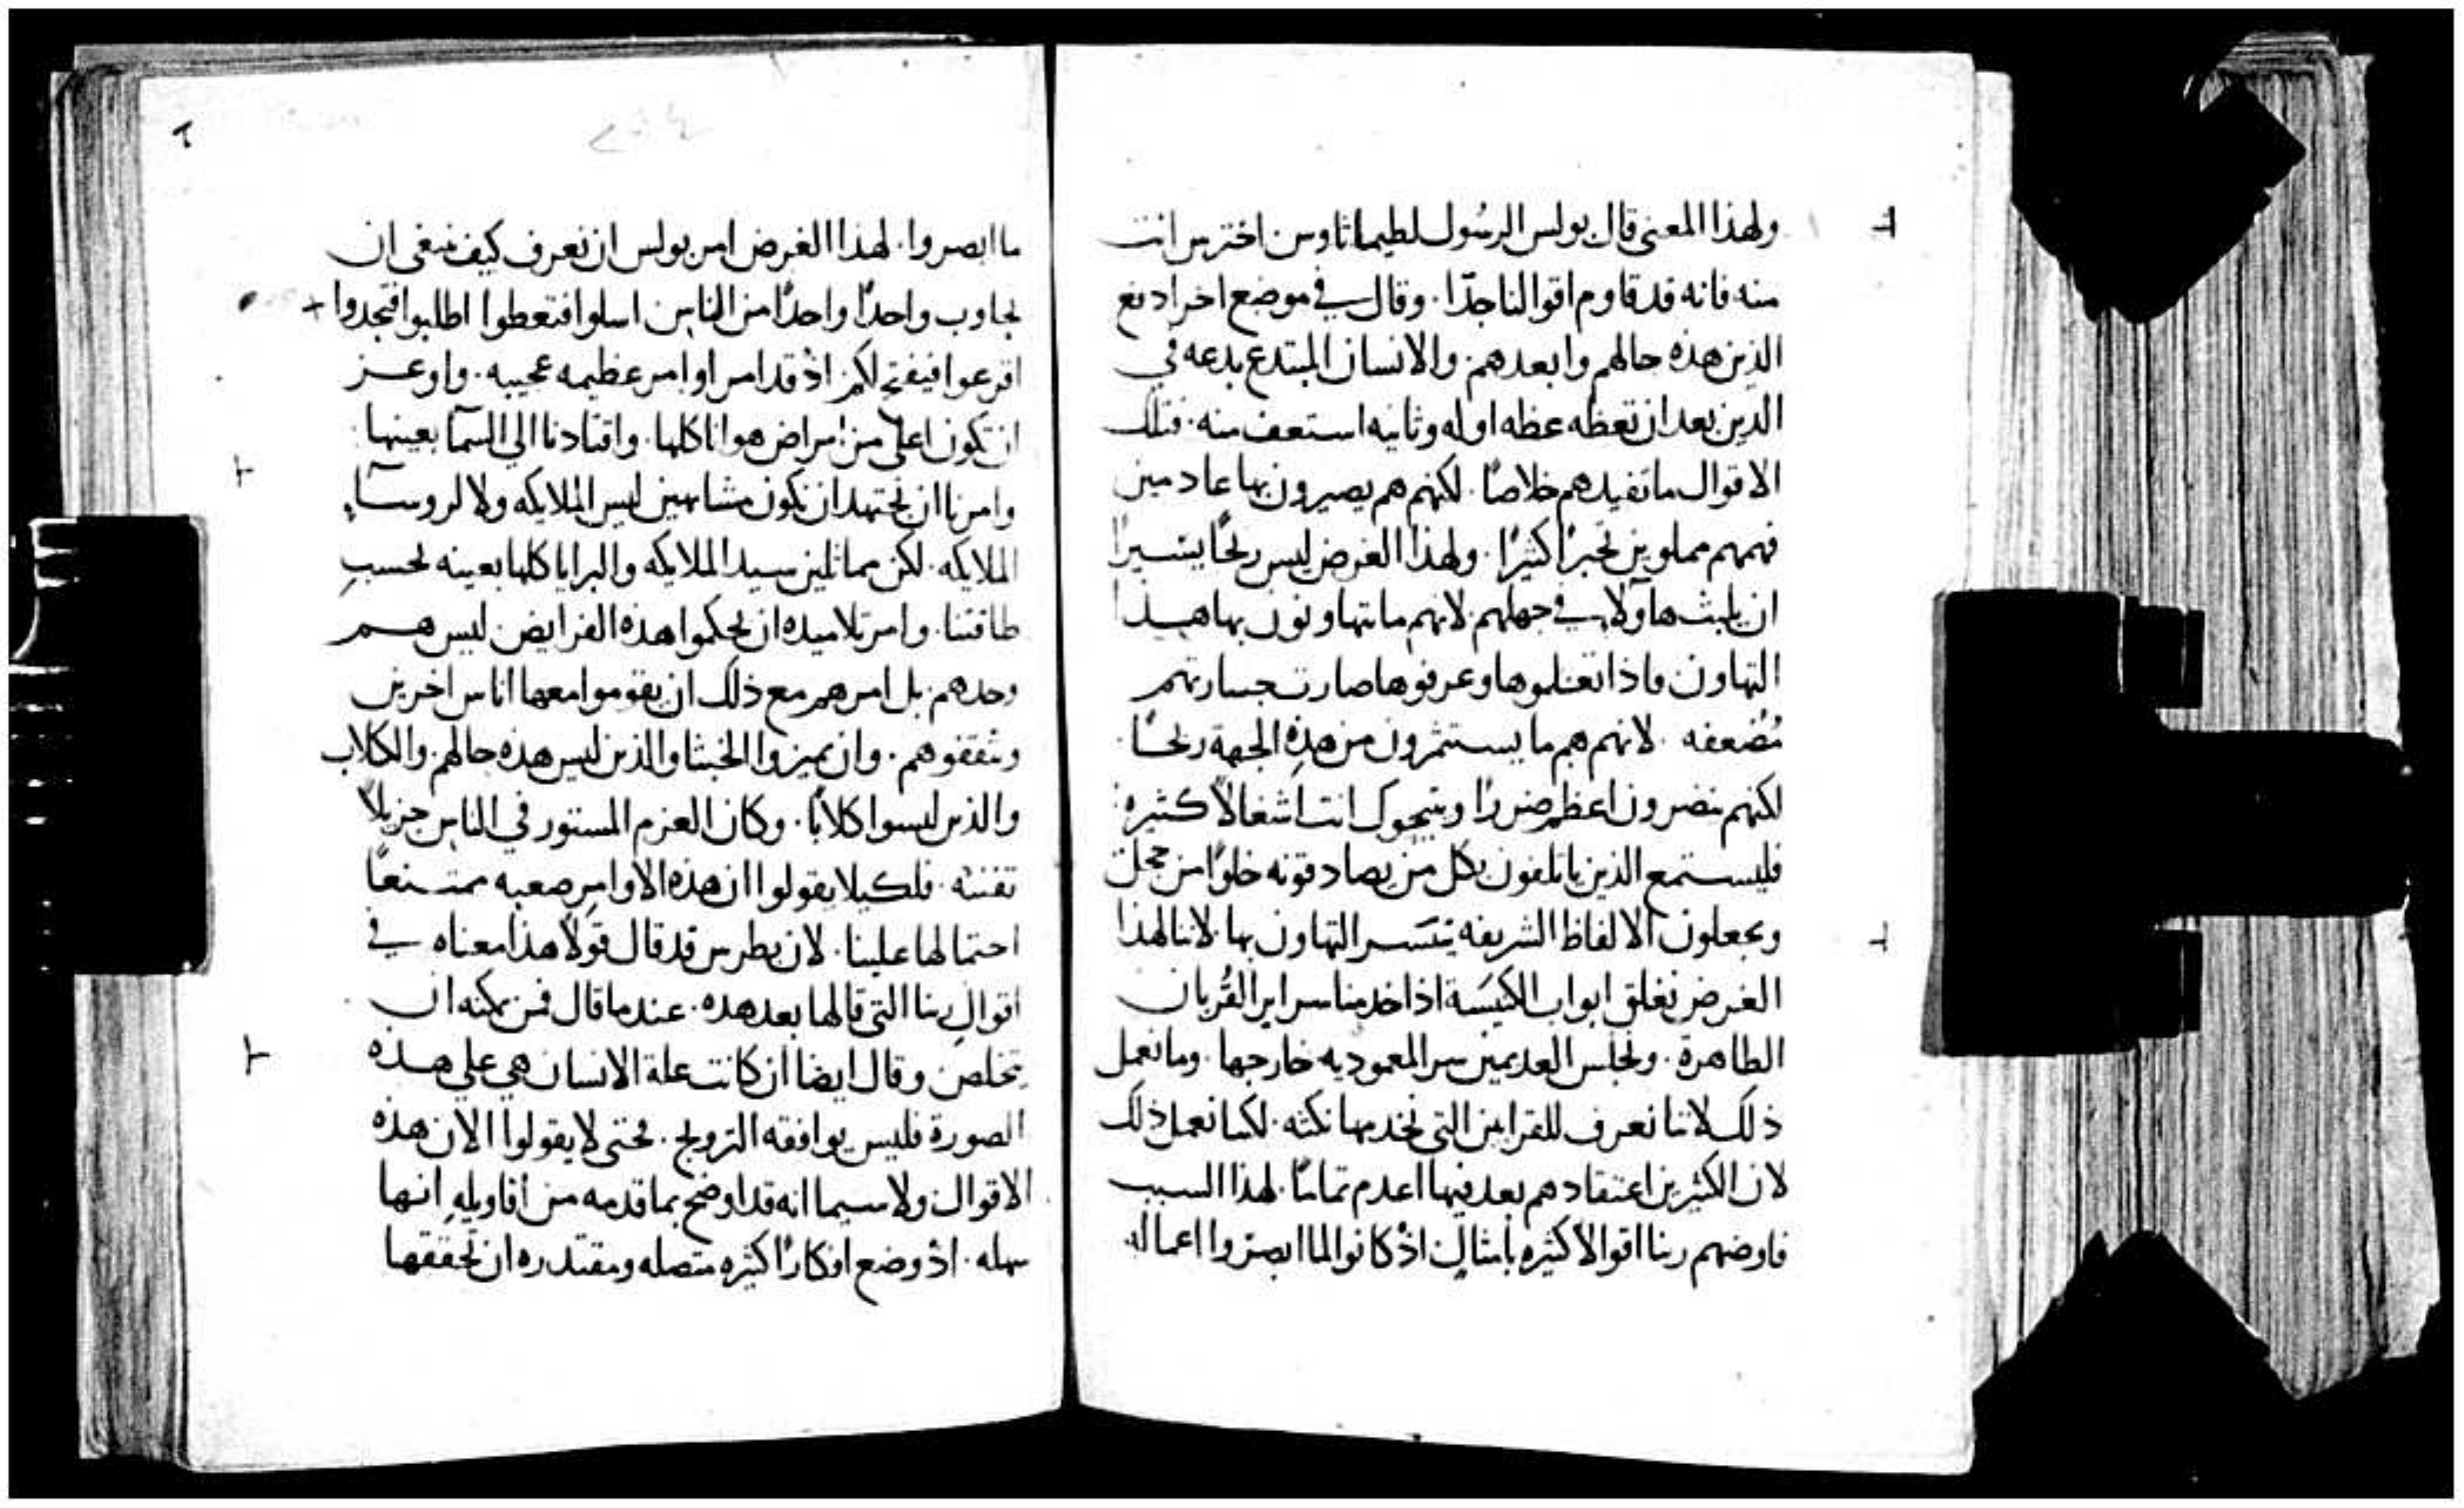 ولهذا المعنى قال بولس الرسُول لطيماثاوس احترس انت
منه فانه قد قاوم اقوالنا جدّا. وقال في موضع اخر ادفع
الذين هذه حالهم وابعدهم. والانسان المبتدع بدعه في
الدين بعد ان تعظه عظه اوله وثانيه استعف منه. فتلك
الاقوال ما تفيدهم خلاصًا. لكنهم هم يصيرون بها عادمين
فهمهم مملوين تحيرًا كثيرًا. ولهذا الغرض ليس ربحًا يسيرًا
ان يلبث هاولاء في جهلهم لانهم ما يتهاونون بها هـذا
التهاون فاذا تعلموها وعرفوها صارت جسارتهم
مُضعفه. لانهم هم ما يستثمرون من هذهِ الجهة ربحًا.
لكنهم يتضررون اعظم ضررًا ويتيحوك انت اشغالاً كثيره
فليستمع الذين ياتلفون بكل من يصادفونه خلوًا من خجل
ويجعلون الالفاظ الشريفه يتيَسر التهاون بها. لاننا لهذا
الغرض نغلق ابواب الكنيسَة اذا خدمنا سراير القُربان
الطاهرة. ونجلس العديمين سر المعموديه خارجها. وما نعمل
ذلك لاننا نعرف للقرابين التي نخدمها نكثه. لكنا نعمل ذلك
لان الكثيرين اعتقادهم بعد فيها اعدم تمامًا. لهذا السبب
فاوضهم ربنا اقوالاً كثيره بأمثالٍ اذ كانوا لما ابصروا اعماله
٢
٢٥٤
ما ابصروا. لهذا الغرض امر بولس ان نعرف كيف ينبغي ان
نجاوب واحدًا واحدًا من الناس اسلوا فتعطوا اطلبوا فتجدوا +
اقرعوا فيفتح لكم. اذ قد امر اوامر عظيمه عجيبه. واوعـز
ان نكون اعلى من امراض هوانا كلها. واقتادنا الي السمآ بعينها
وامرنا ان نجتهد ان نكون مشابهين ليس الملايكه ولا لروسآء
الملايكه. لكن مماثلين سيد الملايكه والبرايا كلها بعينه بحسب
طاقتنا. وامر تلاميذه ان يحكموا هذه الفرايض ليس هـم
وحدهم. بل امرهم مع ذلك ان يقوموا معها اناس اخرين
ويثقفوهم. وان يميزوا الخبثا والذين ليس هذه حالهم. والكلاب
والذين ليسوا كلابًا. وكان العزم المستور في الناس جزيلاً
تفننه. فلكيلا يقولوا ان هذه الاوامر صعبه ممتنعًا
احتمالها علينا. لان بطرس قد قال قولاً هذا معناه في
اقوال ربنا التي قالها بعد هذه. عندما قال فمن يمكنه ان
يتخلص وقال ايضا ان كانت علة الانسان هي علي هـذه
الصورة فليس يوافقه التزويج. فحتى لا يقولوا الان هذه
الاقوال ولا سيما انه قد اوضح بما قدمه من اقاويلهِ انها
سهله. اذ وضع افكارًا كثيره متصله ومقتدره ان تحققها